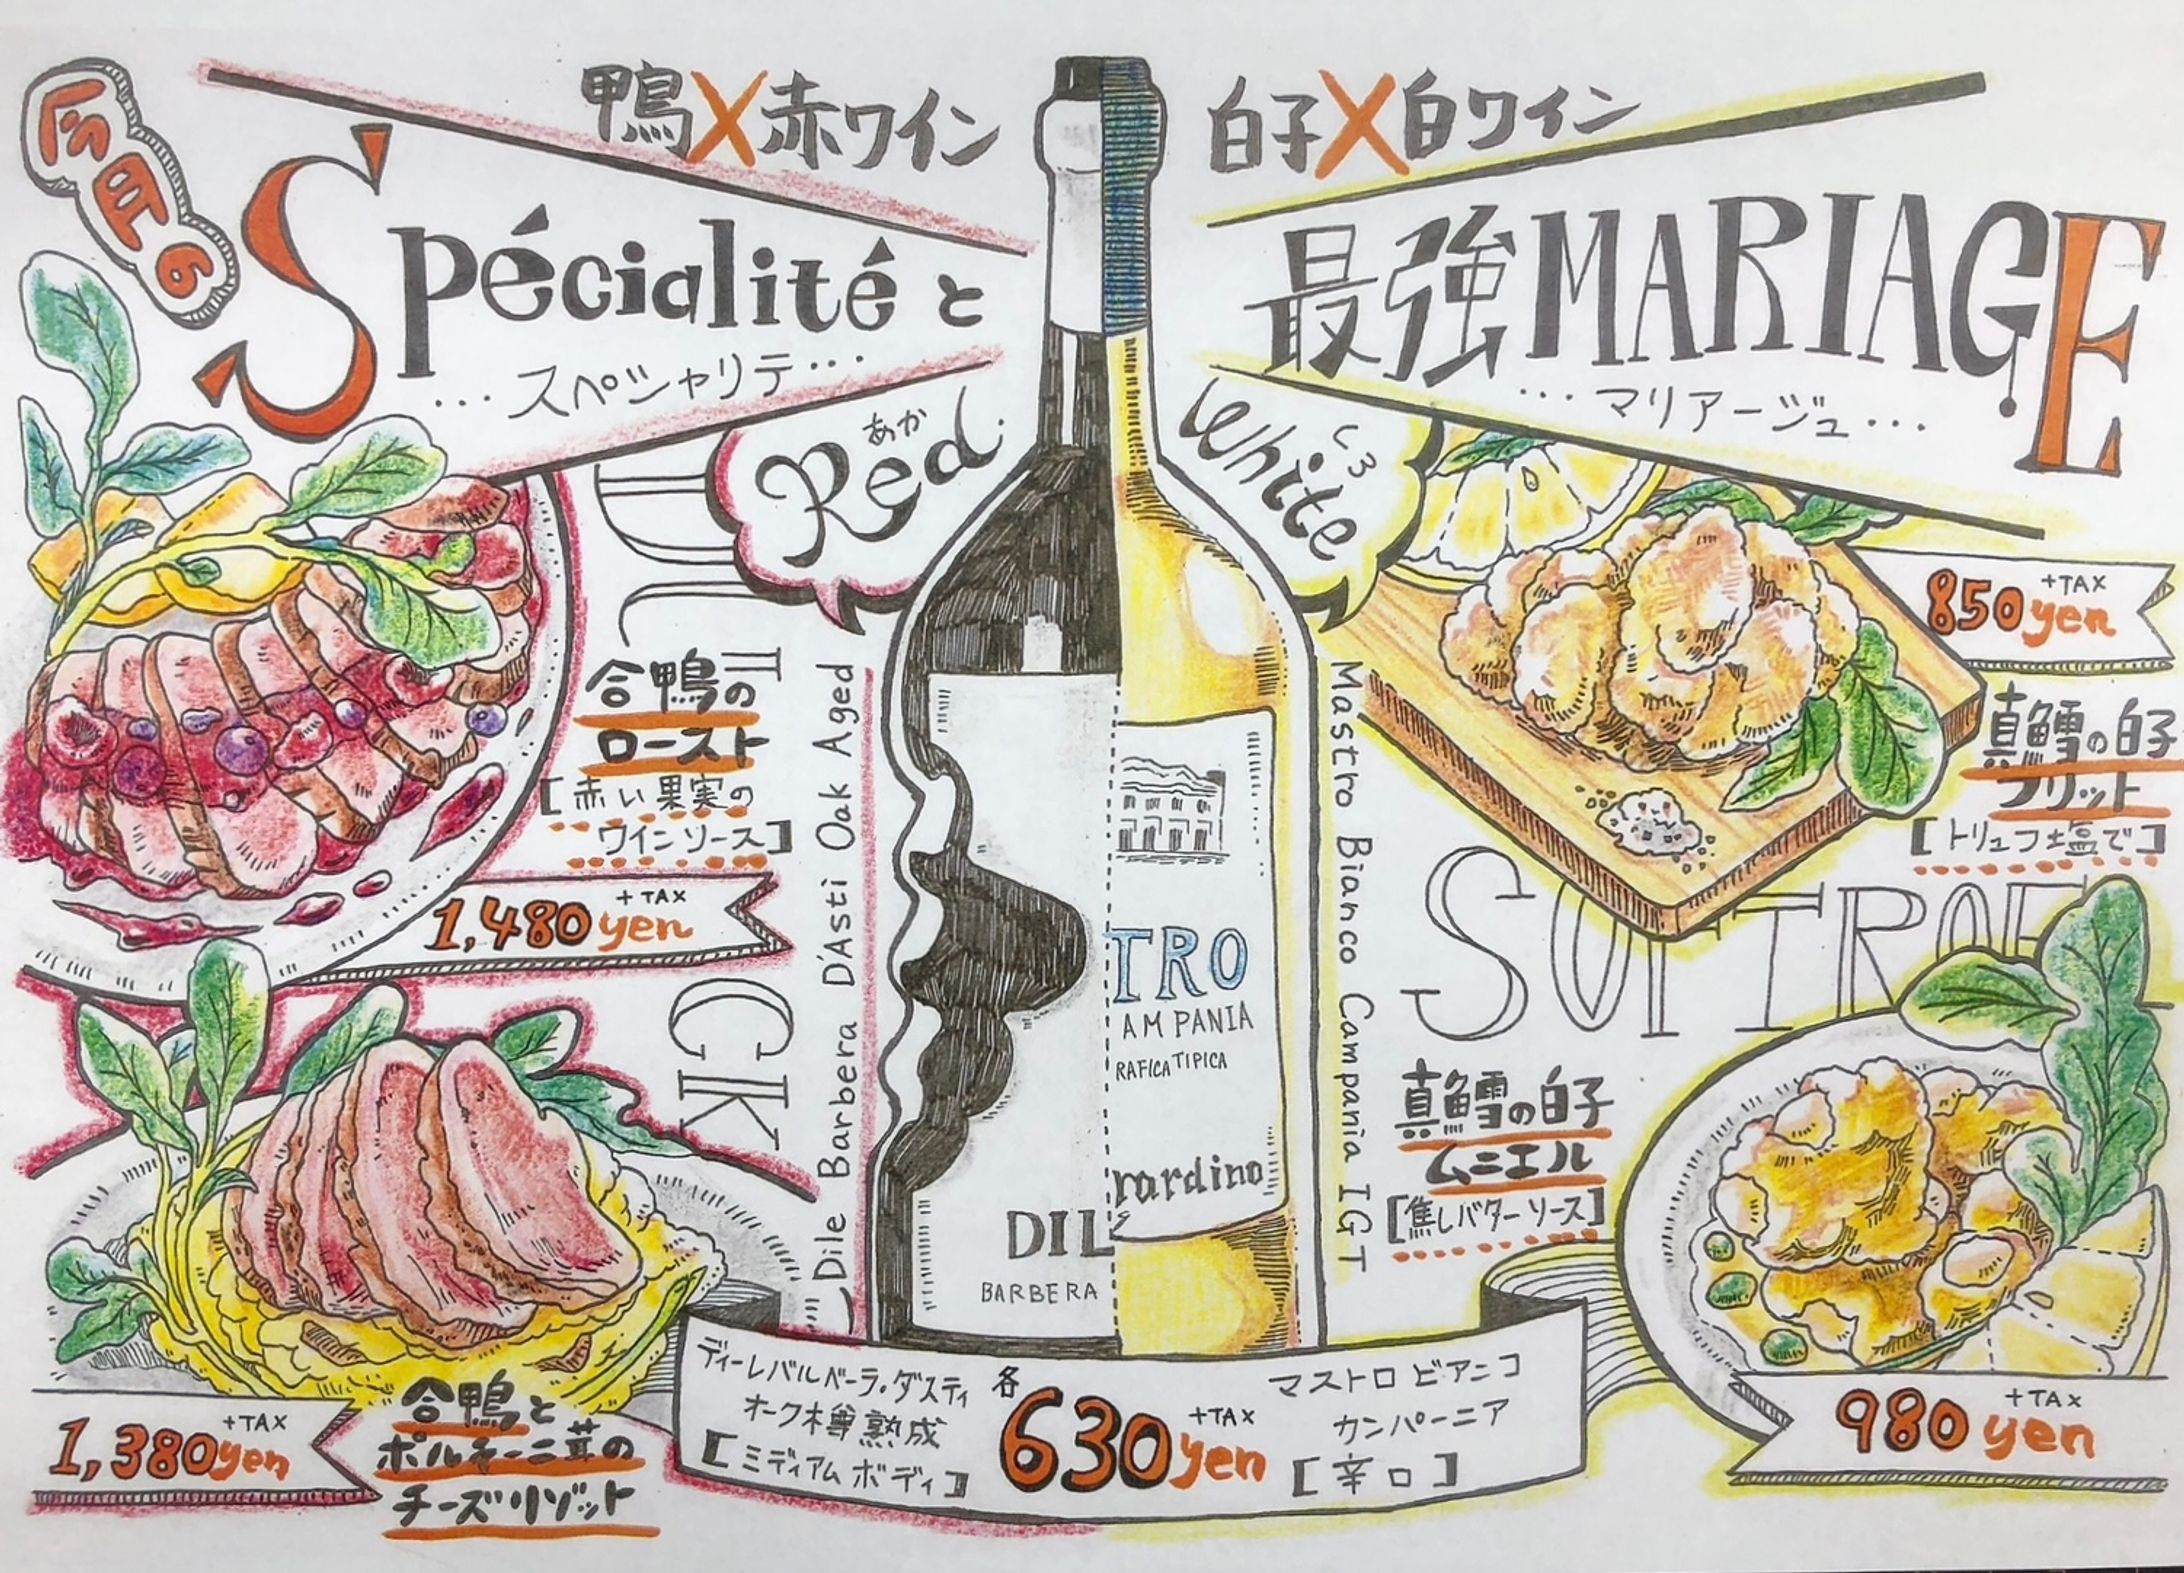 鴨X赤ワイン
Spécialitéと
...スペシャリテ...
白子X白ワイン
最強MARIAGE
...マリアージュ...
あか
Red
しろ
White
DUCK
合鴨の
ロースト
[赤い果実の
ワインソース]
1,480yen +TAX
合鴨と
ポルチーニ茸の
チーズリゾット
1,380yen +TAX
Dile Barbera D'Asti Oak Aged
DIL
BARBERA
TRO
AMPANIA
RAFICA TIPICA
rardino
Mastro Bianco Campania IGT
850yen +TAX
真鱈の白子
フリット
[トリュフ塩で]
真鱈の白子
ムニエル
[焦しバターソース]
980yen +TAX
ディーレバルベーラ・ダスティ
オーク樽熟成
[ミディアムボディ]
各630yen +TAX
マストロ ビアンコ
カンパーニア
[辛口]